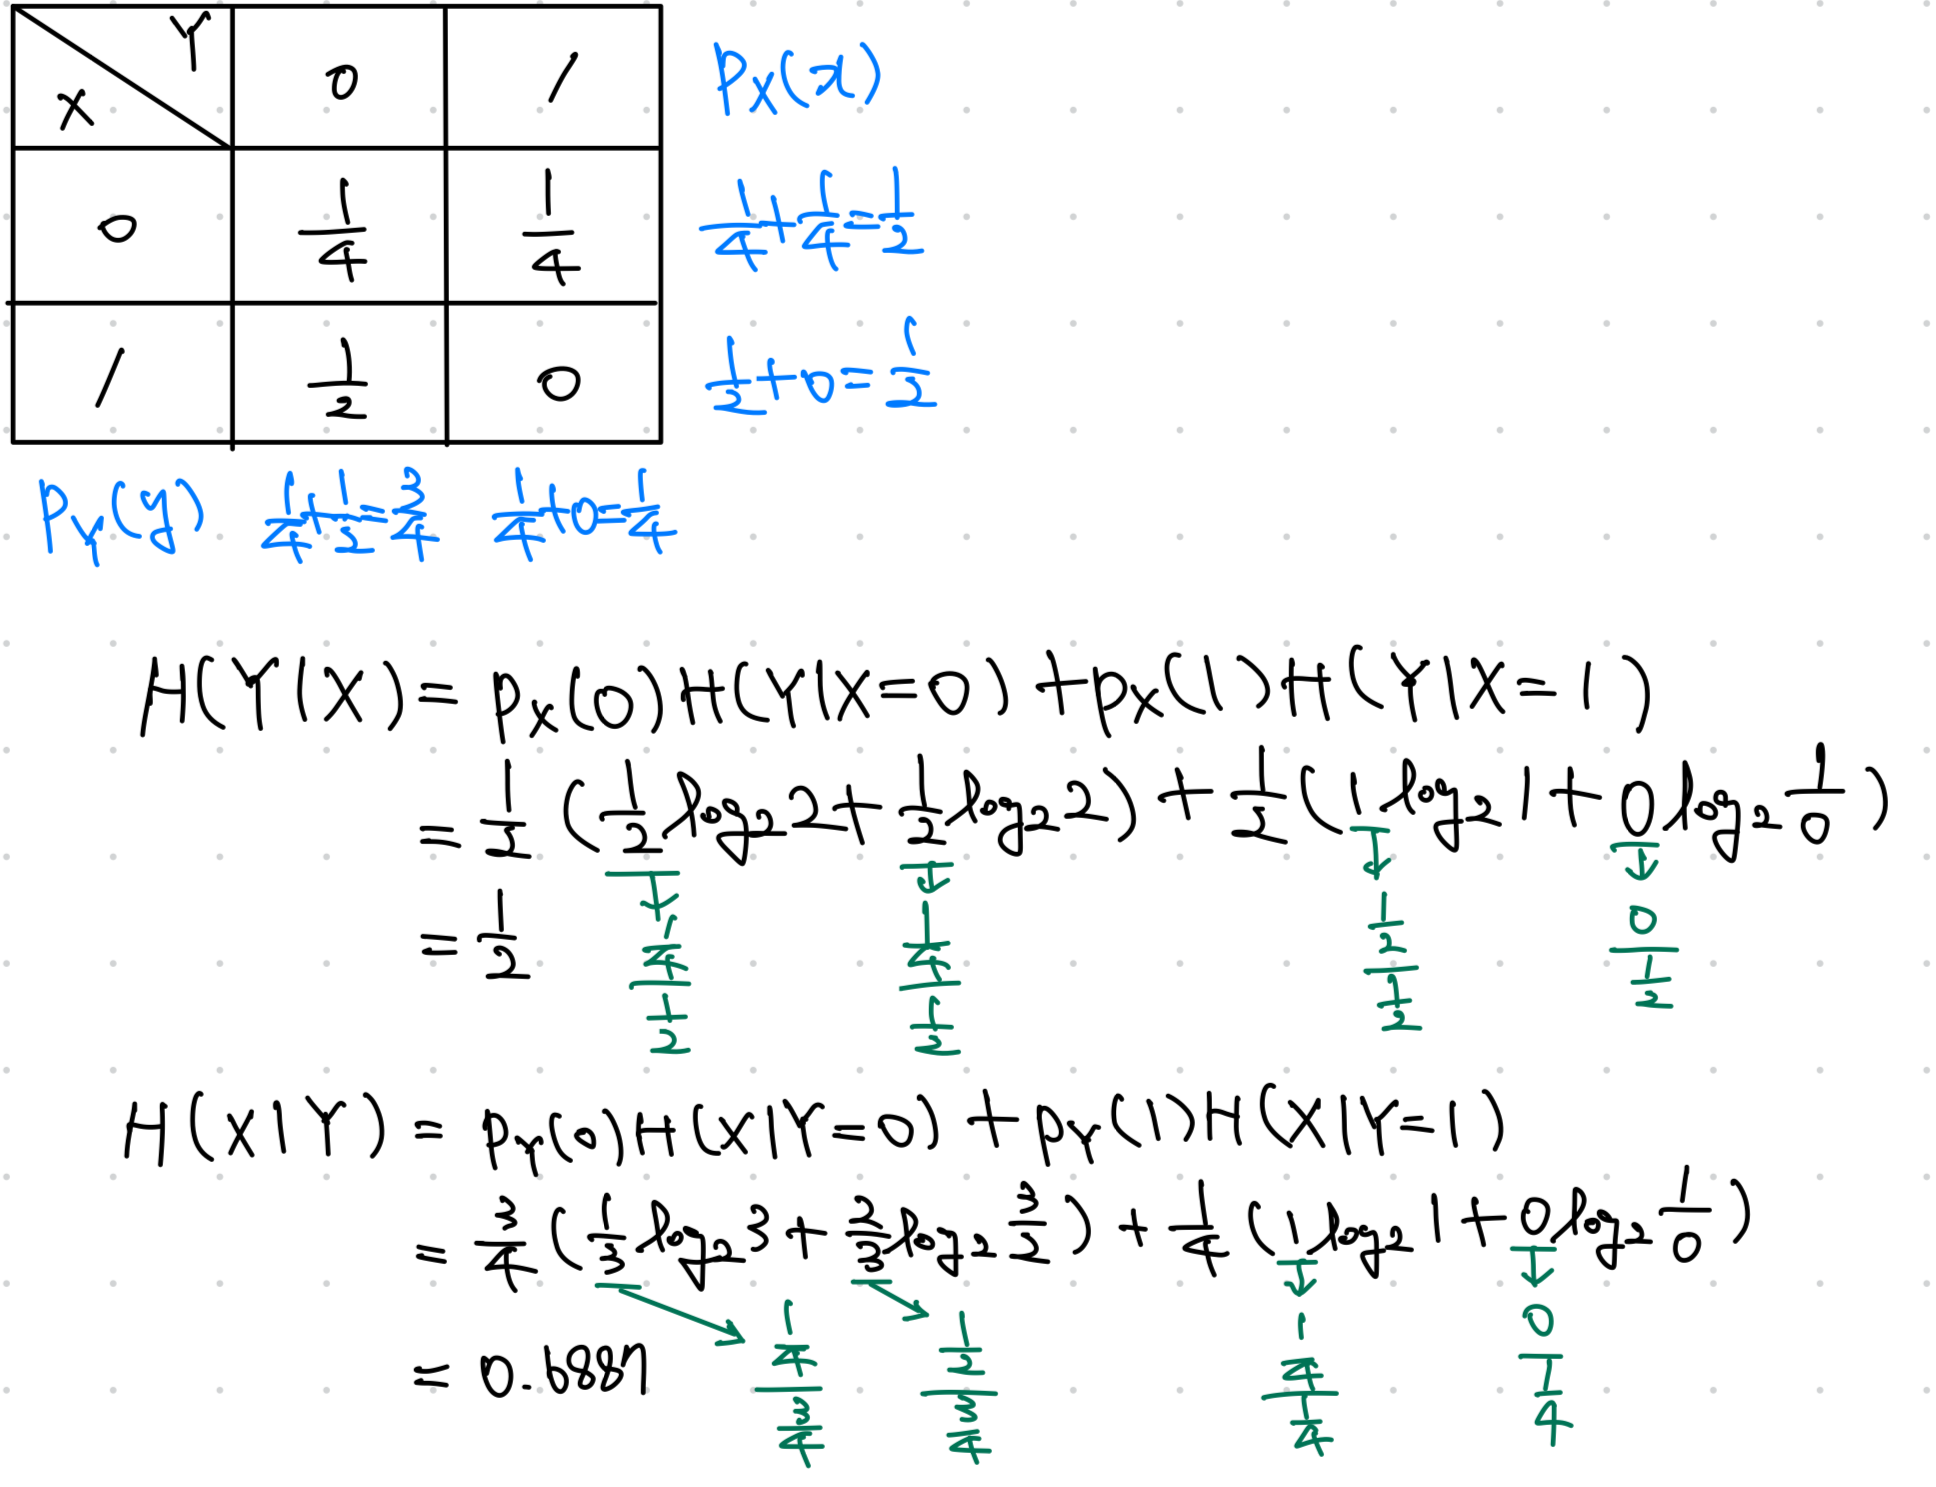 X \ Y 0 1 P_X(x)
0 1/4 1/4 1/4+1/4=1/2
1 1/2 0 1/2+0=1/2
P_Y(y) 1/4+1/2=3/4 1/4+0=1/4
H(Y|X) = p_X(0)H(Y|X=0) + p_X(1)H(Y|X=1)
= 1/2 (1/2 log_2 2 + 1/2 log_2 2) + 1/2 (1 log_2 1 + 0 log_2 1/0)
= 1/2
(1/4)/(1/2) (1/4)/(1/2) (1/2)/(1/2) 0/(1/2)
H(X|Y) = p_Y(0)H(X|Y=0) + p_Y(1)H(X|Y=1)
= 3/4 (1/3 log_2 3 + 2/3 log_2 3/2) + 1/4 (1 log_2 1 + 0 log_2 1/0)
= 0.6887
(1/4)/(3/4) (1/2)/(3/4) (1/4)/(1/4) 0/(1/4)